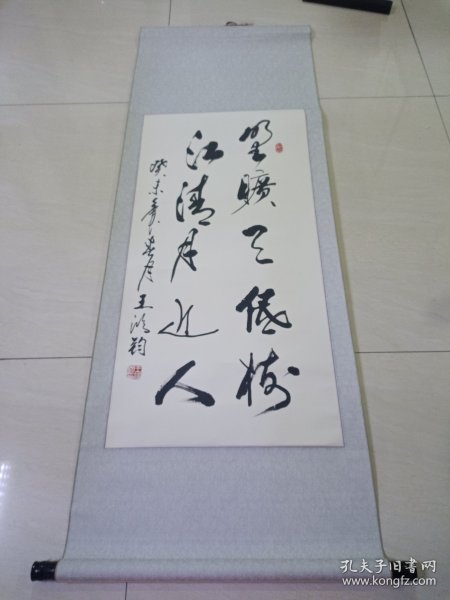 野曠天低樹
江清月近人
癸未年春月王鸿钧
孔夫子旧书网
www.kongfz.com